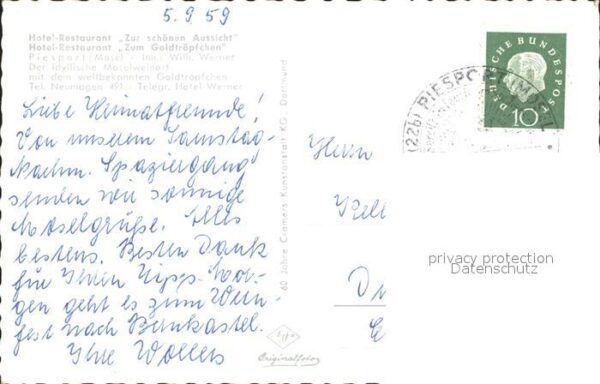 5.9.59
Hotel-Restaurant „Zur schönen Aussicht"
Hotel-Restaurant „Zum Goldtröpfchen"
Piesport (Mosel) - Inh.: Willi Werner
Der idyllische Moselweinort
mit dem weltbekannten Goldtröpfchen
Tel. Neumagen 451 - Telegr. Hotel Werner
Liebe Heimatfreunde!
Von unserem Samstag-
Nachm. Spaziergang
senden wir sonnige
Moselgrüße. Alles
bestens. Besten Dank
für Ihren Tipp. Mor-
gen geht es zum Wein-
fest nach Bernkastel.
Ihre
60 Jahre Cramers Kunstanstalt KG., Dortmund
Originalfoto
DEUTSCHE BUNDESPOST
10
(22b) PIESPORT (MOSEL)
Herrn
privacy protection
Datenschutz